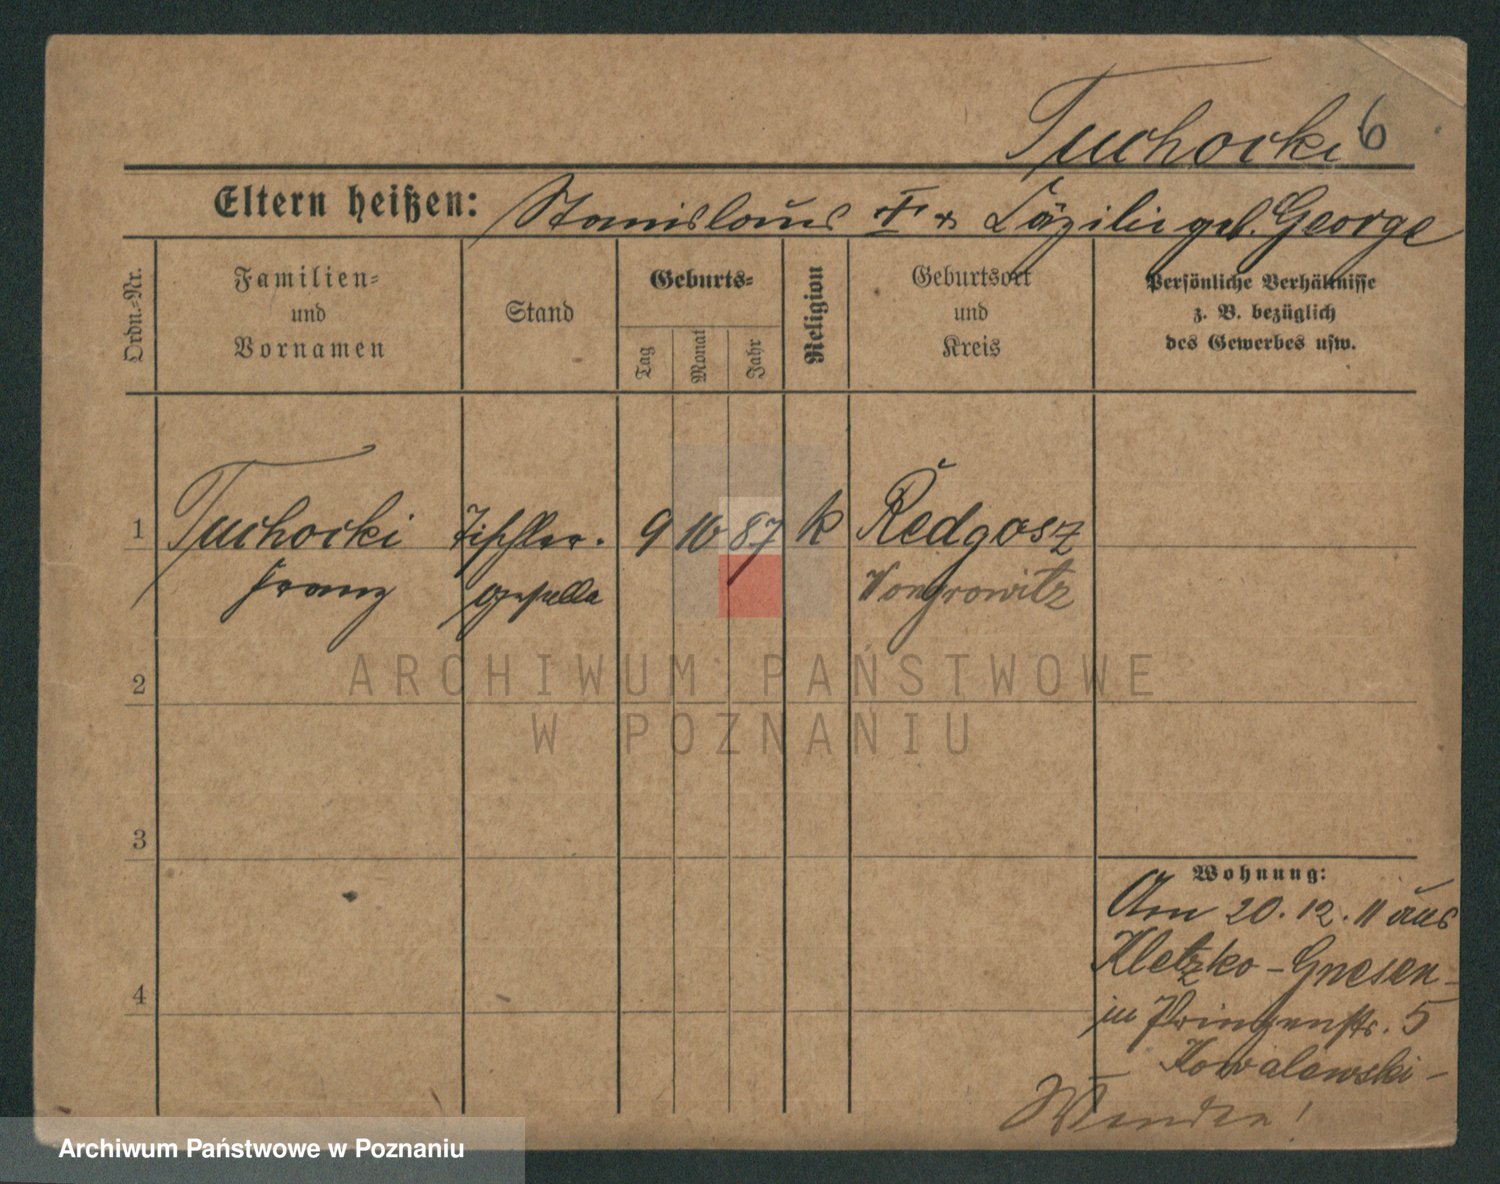 Tuchocki 6
Eltern heißen: Stanislaus u. Cäzilie geb. George
Ordn.-Nr.
Familien-
und
Vornamen
Stand
Geburts-
Tag
Monat
Jahr
Religion
Geburtsort
und
Kreis
Persönliche Verhältnisse
z. B. bezüglich
des Gewerbes usw.
1 Tuchocki Tischler- 9 10 87 k Redgosz
Franz geselle Wongrowitz
2
3
4
Wohnung:
Am 20.12.11 aus
Kletzko - Gnesen -
in Prinzenstr. 5
Kowalewski -
Wenden!
ARCHIWUM PAŃSTWOWE
W POZNANIU
Archiwum Państwowe w Poznaniu